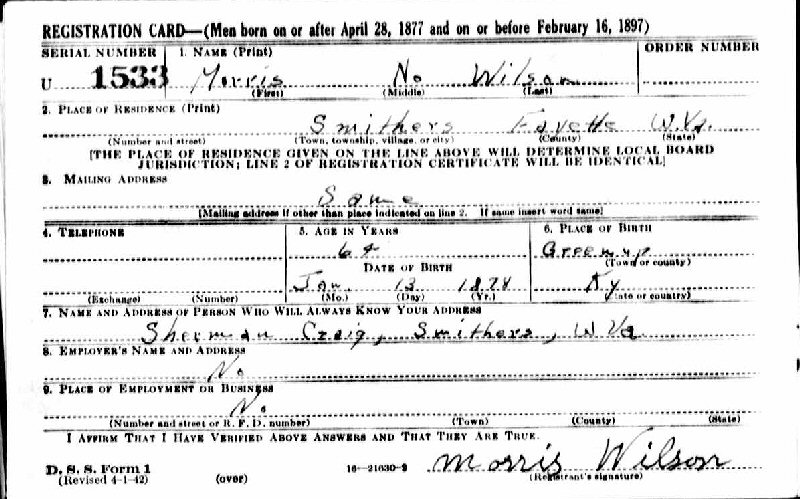 REGISTRATION CARD—(Men born on or after April 28, 1877 and on or before February 16, 1897)
SERIAL NUMBER 1. NAME (Print) ORDER NUMBER
U 1533 Morris No Wilson
(First) (Middle) (Last)
2. PLACE OF RESIDENCE (Print)
Smithers Fayette W.Va.
(Number and street) (Town, township, village, or city) (County) (State)
[THE PLACE OF RESIDENCE GIVEN ON THE LINE ABOVE WILL DETERMINE LOCAL BOARD
JURISDICTION; LINE 2 OF REGISTRATION CERTIFICATE WILL BE IDENTICAL]
3. MAILING ADDRESS
Same
[Mailing address if other than place indicated on line 2. If same insert word same]
4. TELEPHONE 5. AGE IN YEARS 6. PLACE OF BIRTH
64 Greenup
DATE OF BIRTH (Town or county)
Jan. 13 1878 Ky
(Exchange) (Number) (Mo.) (Day) (Yr.) (State or country)
7. NAME AND ADDRESS OF PERSON WHO WILL ALWAYS KNOW YOUR ADDRESS
Sherman Craig, Smithers, W Va
8. EMPLOYER'S NAME AND ADDRESS
No
9. PLACE OF EMPLOYMENT OR BUSINESS
No
(Number and street or R. F. D. number) (Town) (County) (State)
I AFFIRM THAT I HAVE VERIFIED ABOVE ANSWERS AND THAT THEY ARE TRUE.
D. S. S. Form 1
(Revised 4-1-42) (over) 16—21630-2 Morris Wilson
(Registrant's signature)